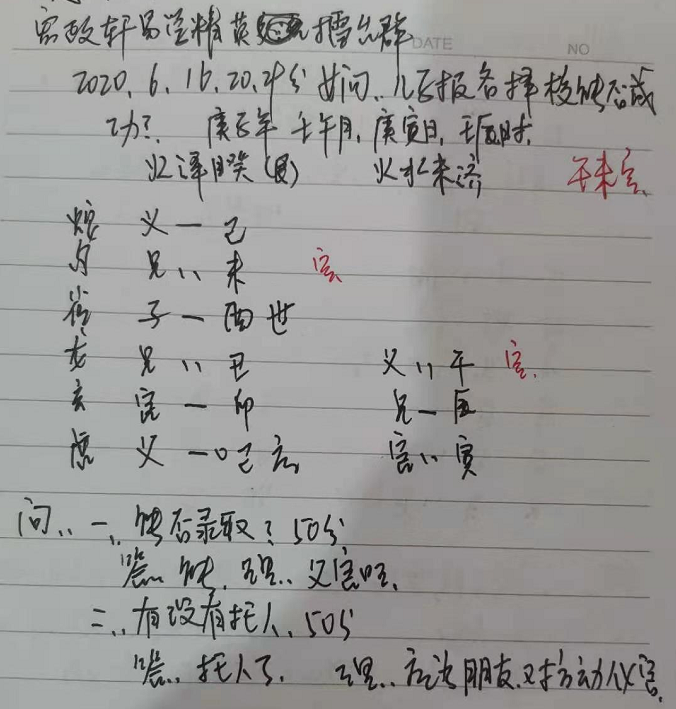 易学精英擂台群 DATE NO
2020.6.16.20.24分 女问:儿子报名择校能否成
功? 庚子年 壬午月 庚寅日 时
火泽睽(艮) 火水未济 午未官
父一巳
勾 兄〃未 官
子一酉世
龙 兄〃丑 父〃午 官
玄 官一卯 兄一辰
虎 父一〇巳应 官〃寅
问:一、能否录取?50分
答:能,理:父官旺、
二:有没有托人、50分
答:托人了. 理:应为朋友.对方动化官.